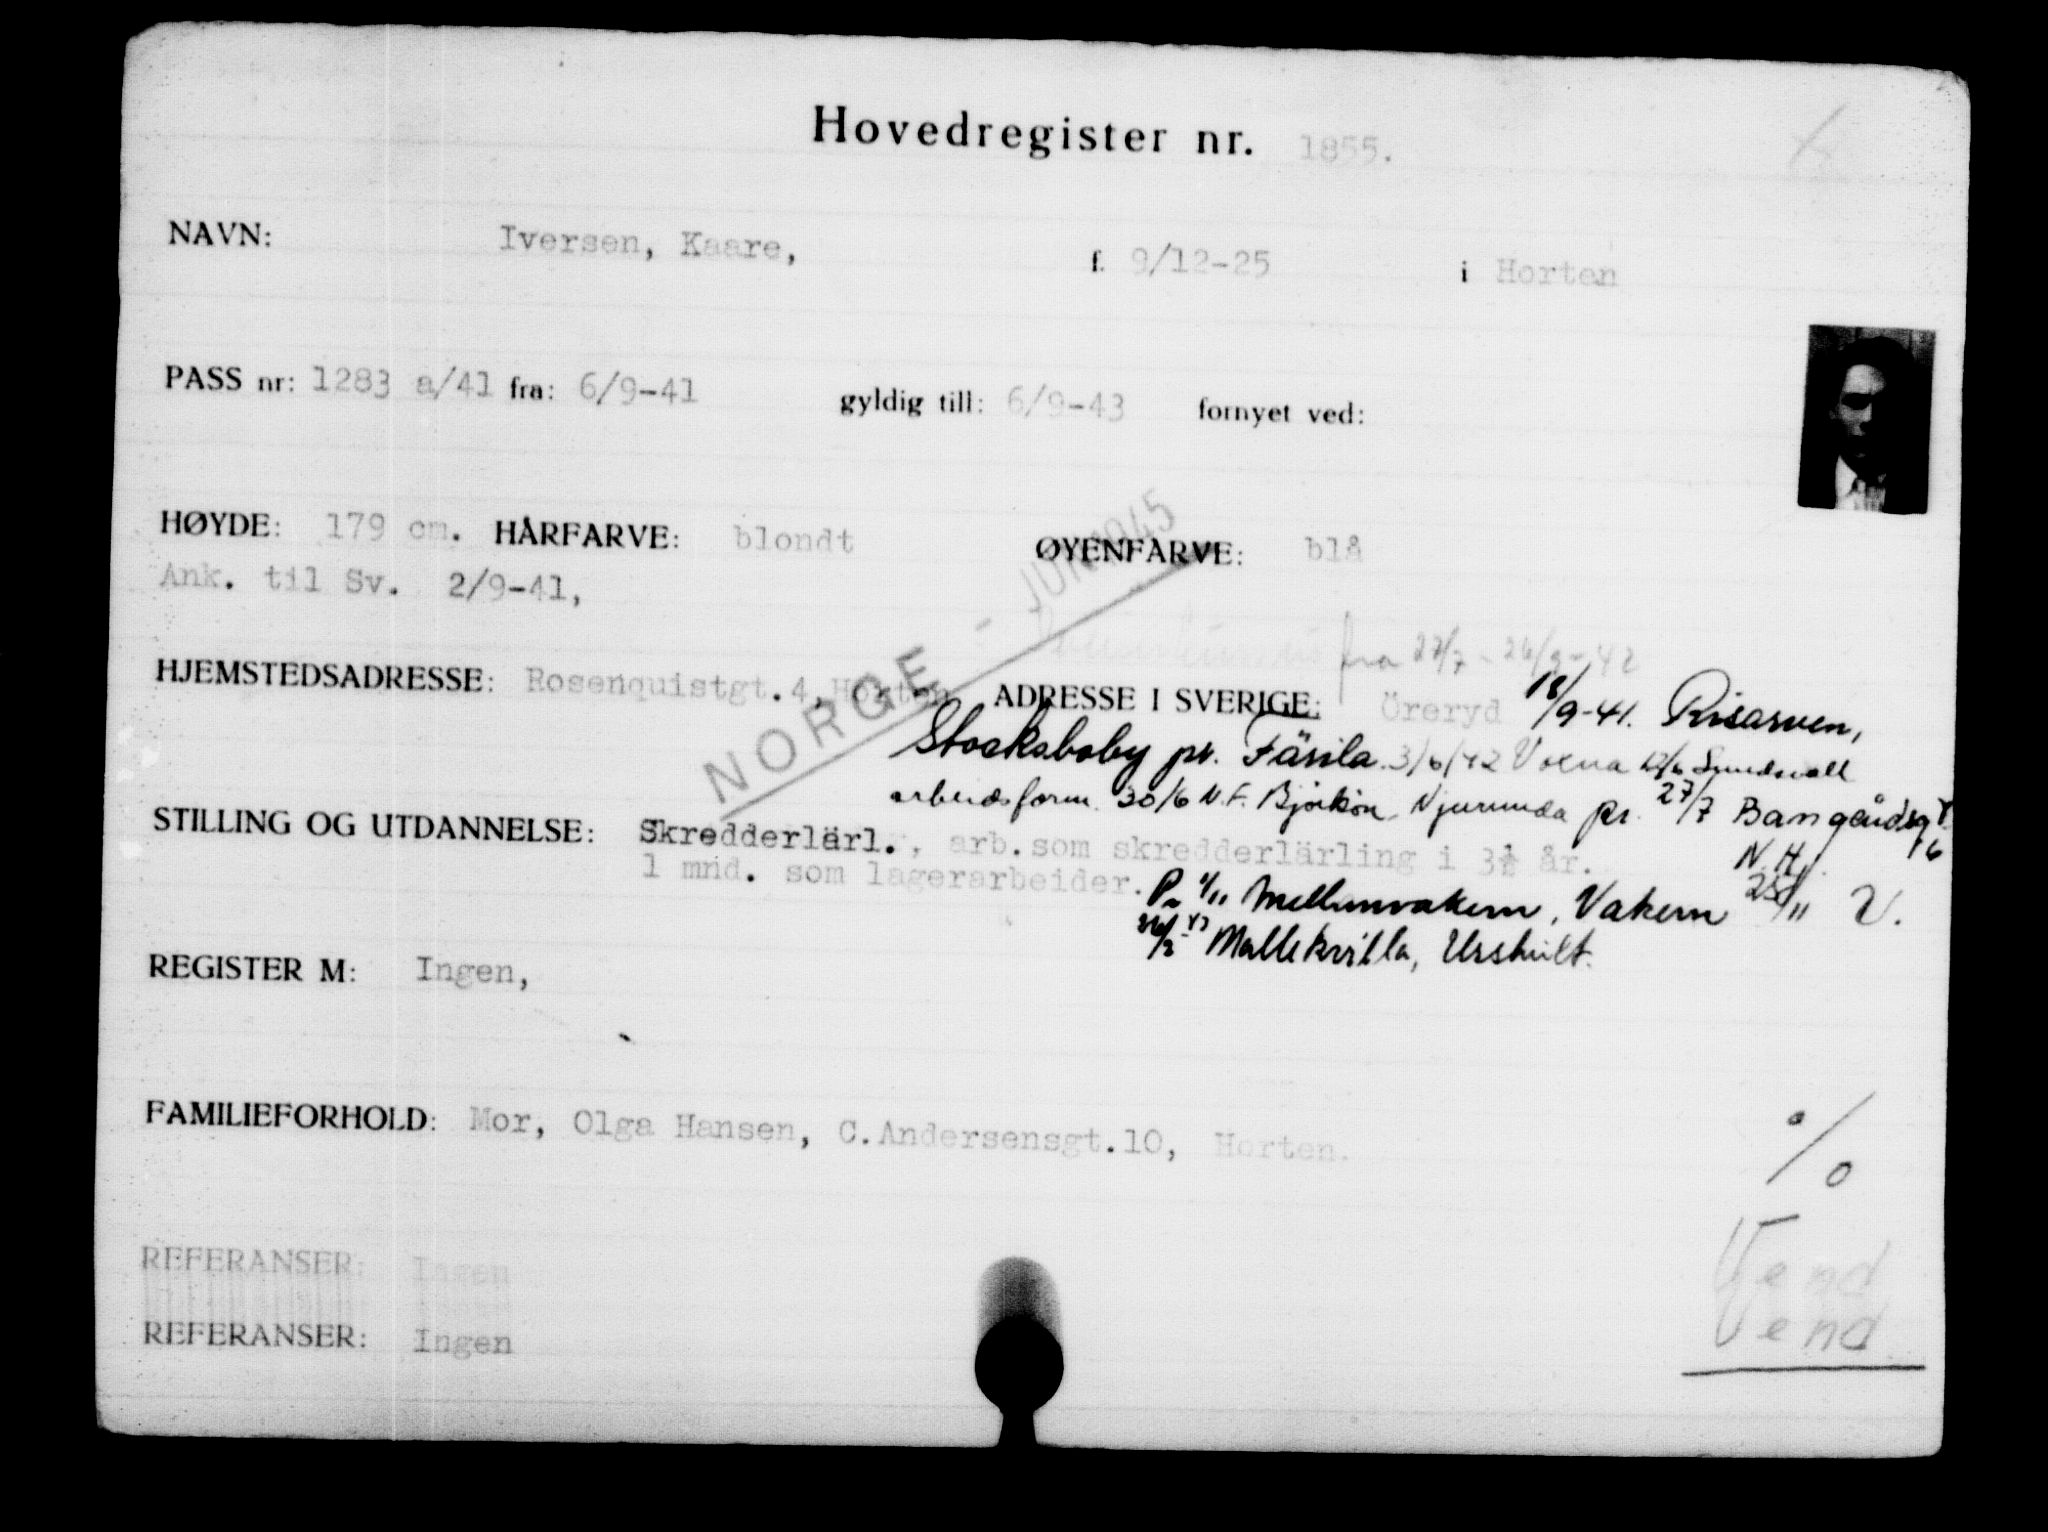 Hovedregister nr. 1855.
NAVN: Iversen, Kaare, f. 9/12-25 i Horten
PASS nr: 1283 a/41 fra: 6/9-41 gyldig till: 6/9-43 fornyet ved:
HØYDE: 179 cm. HÅRFARVE: blondt ØYENFARVE: blå
Ank. til Sv. 2/9-41,
NORGE - JUNI 1945
fra 27/7 - 26/9-42
HJEMSTEDSADRESSE: Rosenquistgt.4, Horten ADRESSE I SVERIGE: Öreryd 18/9-41. Risarven,
Stocksboby pr. Färila. 3/6/42 Voxna 12/6 Sundsvall
arbeidsform. 30/6 N.F. Björkön, Njurunda pr. 27/7 Bangårdsg
16
STILLING OG UTDANNELSE: Skredderlärl., arb.som skredderlärling i 3½ år. N.H.
1 mnd. som lagerarbeider. 1/11 Mellanvakern, Vakern 25/11 V.
Mallekvilla, Urshult.
REGISTER M: Ingen,
FAMILIEFORHOLD: Mor, Olga Hansen, C.Andersensgt.10, Horten.
o/o
REFERANSER: Ingen
Vend
REFERANSER: Ingen
Vend